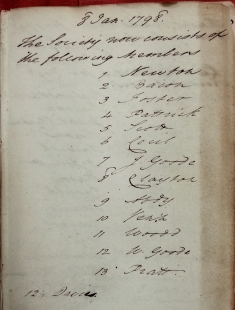 8 Jan. 1798.
The Society now consists of
the following Members
1 Newton
2 Bacon
3 Foster
4 Patrick
5 Scott
6 Cecil
7 J Goode
8 Clayton
9 Abdy
10 Venn
11 Woodd
12 W. Goode
13 Pratt.
12. Davies